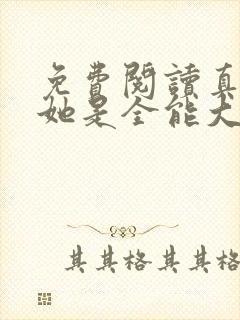 免費閱讀真
她是全能大
其其格其其格